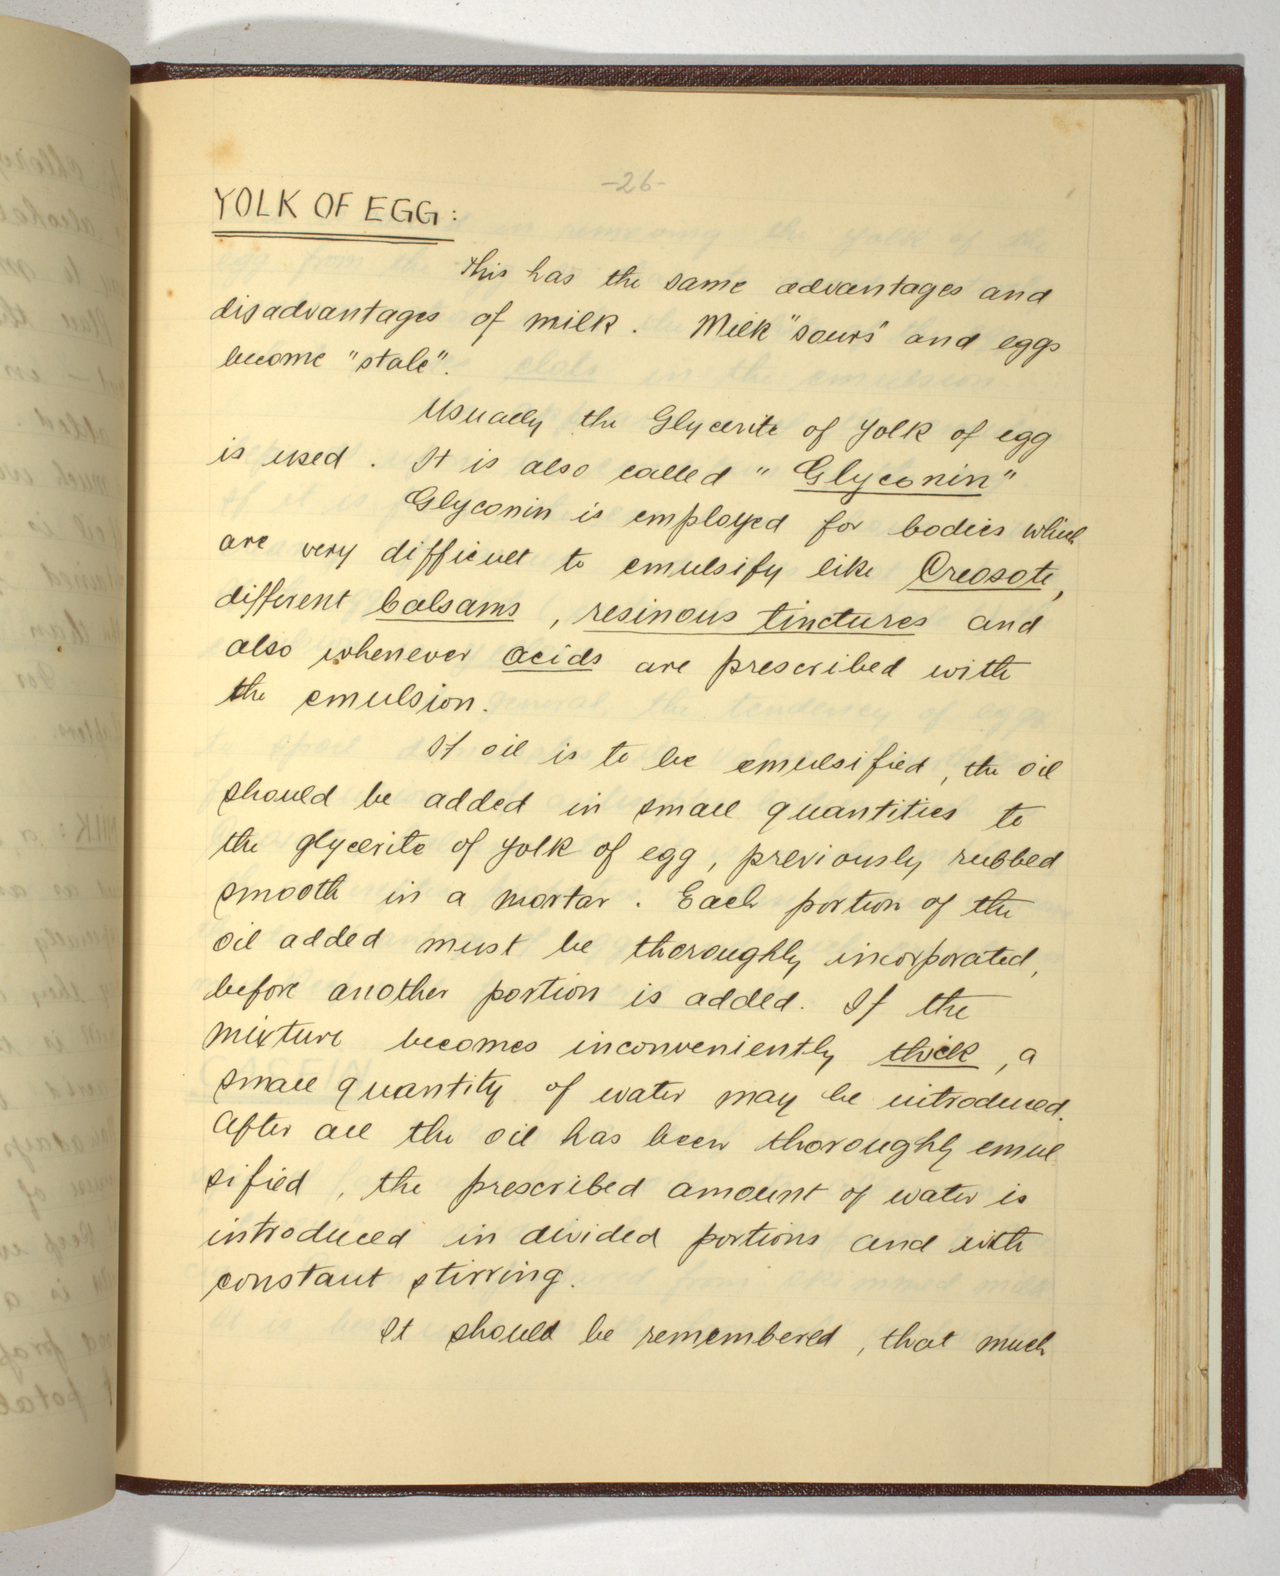 -26-
YOLK OF EGG:
This has the same advantages and
disadvantages of milk. Milk "sours" and eggs
become "stale".
Usually the Glycerite of Yolk of egg
is used. It is also called "Glyconin"
Glyconin is employed for bodies which
are very difficult to emulsify like Creosote,
different balsams, resinous tinctures and
also whenever acids are prescribed with
the emulsion.
If oil is to be emulsified, the oil
should be added in small quantities to
the glycerite of yolk of egg, previously rubbed
smooth in a mortar. Each portion of the
oil added must be thoroughly incorporated,
before another portion is added. If the
mixture becomes inconveniently thick, a
small quantity of water may be introduced.
After all the oil has been thoroughly emul
sified, the prescribed amount of water is
introduced in divided portions and with
constant stirring.
It should be remembered, that much